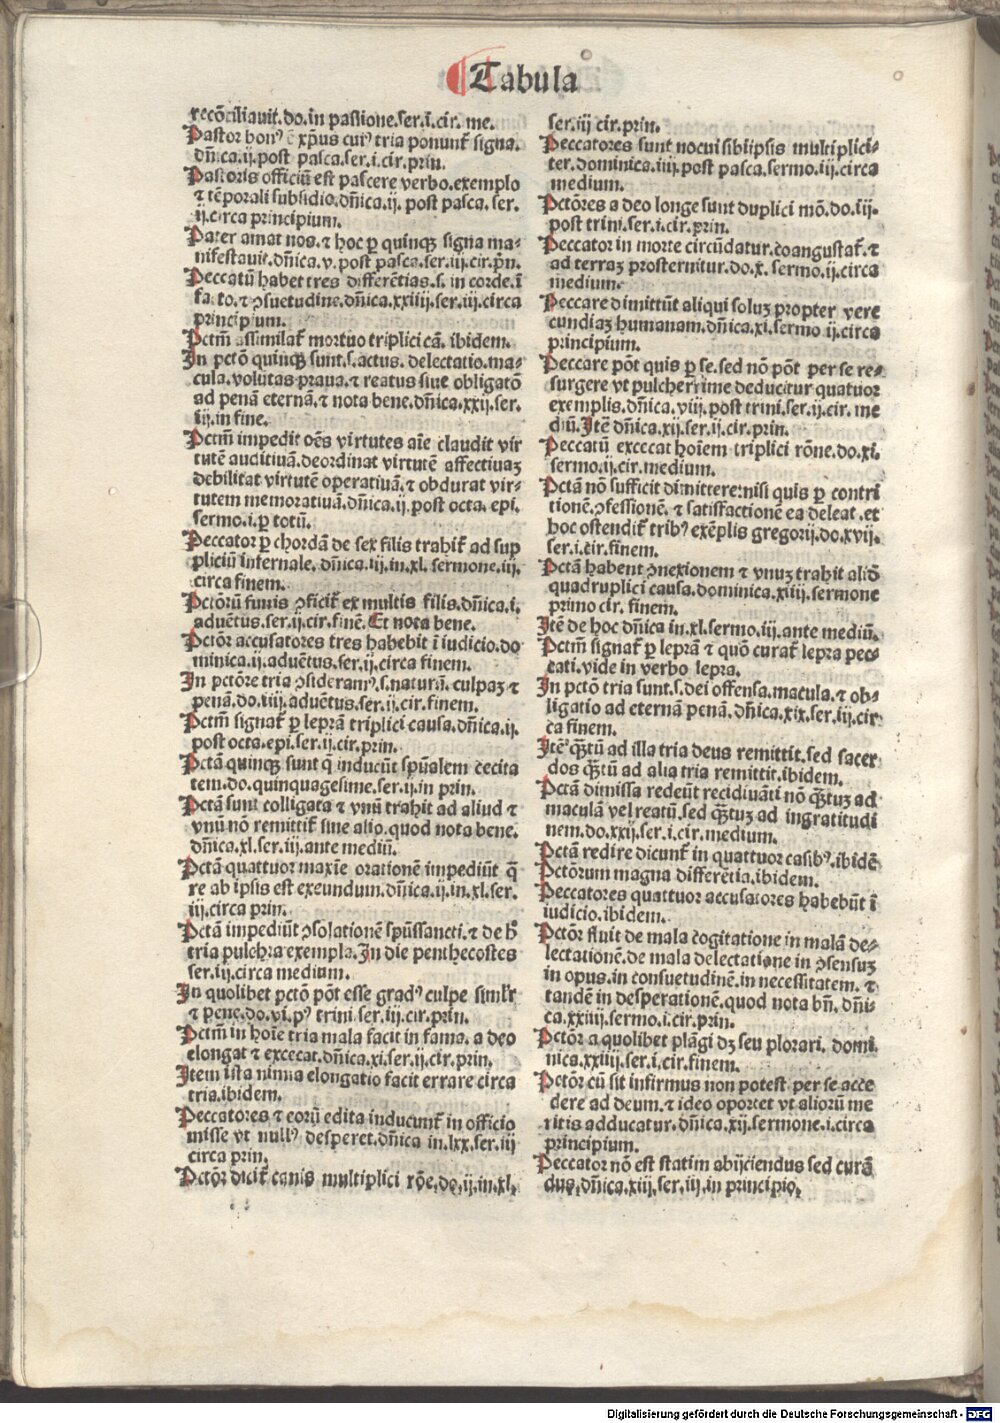 Tabula
recõciliauit.do.in passione.ser.i.cir.me.
Pastor bonꝰ ẽ xp̃us cuiꝰ tria ponunt᷑ signa.
dñica.ij.post pasca.ser.i.cir.prin.
Pastoris officiũ est pascere verbo.exemplo
⁊ tẽporali subsidio.dñica.ij. post pasca. ser.
ij.circa principium.
Pater amat nos.⁊ hoc ꝑ quinqꝫ signa ma⸗
nifestauit.dñica.v.post pasca.ser.iij.cir.pñ.
Peccatũ habet tres differẽtias.s. in corde.ĩ
facto.⁊ ꝯsuetudine.dñica.xxiiij.ser.iij.circa
principium.
Pctm̃ assimilat᷑ mortuo triplici cã. ibidem.
In pctõ quinqꝫ sunt.s.actus. delectatio.ma⸗
cula.volũtas praua.⁊ reatus siue obligatõ
ad penã eternã.⁊ nota bene.dñica.xxij.ser.
iij.in fine.
Pctm̃ impedit oẽs virtutes aĩe claudit vir
tutẽ auditiuã.deordinat virtutẽ affectiuaꝫ
debilitat virtutẽ operatiuã.⁊ obdurat vir⸗
tutem memoratiuã.dñica.ij.post octa. epi.
sermo.i.ꝑ totũ.
Peccator ꝑ chordã de sex filis trahit᷑ ad sup
pliciũ infernale. dñica.iij.in.xl. sermone.iij.
circa finem.
Pctõrũ funis ꝯficit᷑ ex multis filis.dñica.i.
aduẽtus.ser.ij.cir.finẽ. Et nota bene.
Pctõr accusatores tres habebit ĩ iudicio.do
minica.ij.aduẽtus.ser.ij.circa finem.
In pctõre tria ꝯsideramꝰ.s.naturã. culpaꝫ ⁊
penã.do.iiij.aduẽtus.ser.ij.cir.finem.
Pctm̃ signat᷑ ꝑ leprã triplici causa.dñica.ij.
post octa.epi.ser.ij.cir.prin.
Pctã quinqꝫ sunt q̃ inducũt spũalem cecita
tem.do.quinquagesime.ser.ij.in prin.
Pctã sunt colligata ⁊ vnũ trahit ad aliud ⁊
vnũ nõ remittit᷑ sine alio.quod nota bene.
dñica.xl.ser.iij.ante mediũ.
Pctã quattuor maxĩe orationẽ impediũt q̃
re ab ipsis est exeundum.dñica.ij.in.xl.ser.
iij.circa prin.
Pctã impediũt ꝯsolationẽ spũssancti.⁊ de h̊
tria pulchra exempla. In die penthecostes
ser.ij.circa medium.
In quolibet pctõ põt esse gradꝰ culpe simil'r
⁊ pene.do.vi.pꝰ trini ser.iij.cir.prin.
Pctm̃ in hoĩe tria mala facit in fama. a deo
elongat ⁊ excecat.dñica.xi.ser.ij.cir.prin.
Item ista nimia elongatio facit errare circa
tria.ibidem.
Peccatores ⁊ eorũ edita inducunt᷑ in officio
misse vt nullꝰ desperet.dñica in.lxx.ser.iij
circa prin.
Pctõr dicit᷑ canis multiplici rõe.do.ij.in.xl.
ser.iij cir.prin.
Peccatores sunt nocui sibiipsis multiplici⸗
ter.dominica.iiij.post pasca.sermo.iij.circa
medium.
Pctõres a deo longe sunt duplici mõ.do.iij.
post trini.ser.i.cir.prin.
Peccator in morte circũdatur.coangustat᷑.⁊
ad terraꝫ prosternitur.do.x. sermo.ij.circa
medium.
Peccare dimittũt aliqui soluꝫ propter vere
cundiaꝫ humanam.dñica.xi.sermo ij.circa
principium.
Peccare põt quis ꝑ se.sed nõ põt per se re⸗
surgere vt pulcherrime deducitur quatuor
exemplis.dñica.viij.post trini.ser.ij.cir. me
diũ. Itẽ dñica.xij.ser.ij.cir.prin.
Peccatũ excecat hoĩem triplici rõne.do.xi.
sermo.ij.cir.medium.
Pctã nõ sufficit dimittere:nisi quis ꝑ contri
tionẽ.ꝯfessionẽ. ⁊ satisfactionẽ ea deleat .et
hoc ostendit᷑ tribꝰ exẽplis gregorij.do.xvij.
ser.i.cir.finem.
Pctã habent ꝯnexionem ⁊ vnuꝫ trahit aliđ
quadruplici causa.dominica.xiiij.sermone
primo cir. finem.
Itẽ de hoc dñica in.xl.sermo.iij.ante mediũ.
Pctm̃ signat᷑ ꝑ leprã ⁊ quõ curat᷑ lepra pec⸗
cati.vide in verbo lepra.
In pctõ tria sunt.s.dei offensa.macula.⁊ ob⸗
ligatio ad eternã penã. dñica.xix.ser.iij.cir⸗
ca finem.
Itẽ q̃ꝫtũ ad illa tria deus remittit.sed sacer
dos q̃ꝫtũ ad alia tria remittit.ibidem.
Pctã dimissa redeũt recidiuãti nõ q̃ꝫtuꝫ ad
maculã vel reatũ.sed q̃ꝫtuꝫ ad ingratitudi
nem.do.xxij.ser.i.cir.medium.
Pctã redire dicunt᷑ in quattuor casibꝰ.ibidẽ
Pctõrum magna differẽtia.ibidem.
Peccatores quattuor accusatores habebũt ĩ
iudicio.ibidem.
Pctõr fluit de mala cogitatione in malã de⸗
lectationẽ.de mala delectatione in ꝯsensuꝫ
in opus.in consuetudinẽ.in necessitatem. ⁊
tandẽ in desperationẽ.quod nota bñ. dñi⸗
ca.xxiiij.sermo.i.cir.prin.
Pctõr a quolibet plãgi dꝫ seu plorari. domi
nica.xxiiij.ser.i.cir.finem.
Pctõr cũ sit infirmus non potest per se acce
dere ad deum.⁊ ideo oporcet vt aliorũ me
ritis adducatur.dñica.xij.sermone.i.circa
principium.
Peccator nõ est statim abijciendus sed curã
dus.dñica.xiij.ser.iij.in principio.
Digitalisierung gefördert durch die Deutsche Forschungsgemeinschaft - DFG